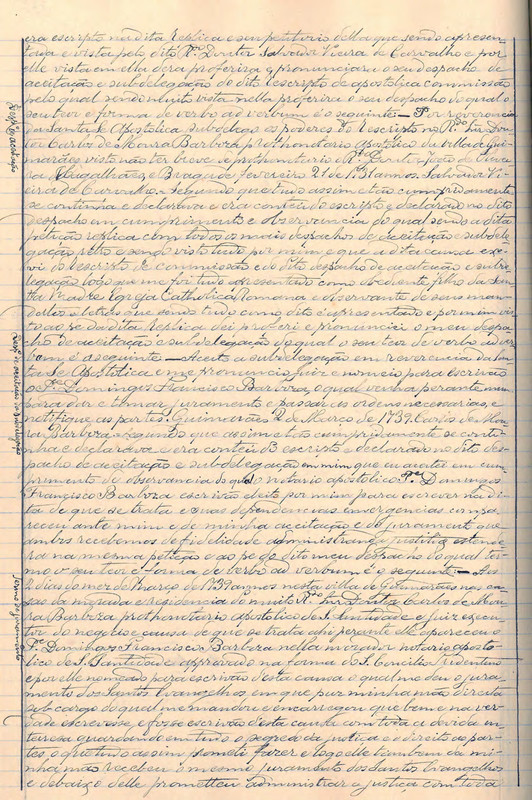 era escripto na dita Replica e seu petitorio della que sendo apresen
tada e vista pelo dito R.do Doutor Salvador Vieira de Carvalho e por
elle vista em ella dera proferira e pronunciara o seu despacho de
aceitação e subdelegação do dito rescripto de apostolica commissão
pelo qual sendo vista nella proferira o seu despacho do qual o
seu teor e forma de verbo ad verbum é o seguinte — Por reverencia
da Santa Sé Apostolica subdelego os poderes do Rescripto no R.do Snr. Dou
tor Carlos de Moura Barboza prothonotario Apostolico da villa de Gui
marães visto não ter breve de prothonotario o R.do João de Olivei
ra Magalhães, e Braga de fevereiro 21 de 1739 annos. Salvador Vi
eira de Carvalho. — Segundo que tudo assim e tão cumpridamente
se continha e declarava e era conteudo escripto e declarado no dito
despacho em cumprimento e observancia do qual sendo a dita
petição replica com todos os mais despachos de aceitação e subdele
gação retro e sendo visto tudo por mim e que a dita causa
do Rescripto de commissão e do dito despacho de aceitação e subde
legação logo que me foi tudo apresentado como obediente filho da San
ta Madre Egreja Catholica Romana e observante de seus man
dados e letras que sendo tudo como dito é apresentado e por mim vis
to ao pe da dita Replica dei proferi e pronunciei o meu despa
cho de aceitação e subdelegação do qual o seu teor de verbo ad ver
bum é o seguinte — Aceito a subdelegação em reverencia da San
ta Sé Apostolica e me pronuncio juiz e nomeio para escrivão
o P.e Domingos Francisco Barboza, o qual venha perante mim
para dar e tomar juramento e passar as ordens necessarias, e
notifique as partes. Guimarães 2 de Março de 1739. Carlos de Mou
ra Barboza — Segundo que assim e tão cumpridamente se conti
nha e declarava e era conteudo escripto e declarado no dito des
pacho de aceitação e subdelegação em mim que eu aceitei em cum
primento e observancia do qual o notario apostolico P.e Domingos
Francisco Barboza escrivão eleito por mim para escrever na di
ta de que se trata e suas dependencias emergencias compa
receu ante mim e de minha aceitação e do juramento que
ambos recebemos de fidelidade administrar justiça esten
ra na mesma petição e ao pe do dito meu despacho do qual ter
mo o seu teor e forma de verbo ad verbum é o seguinte — Aos
2 dias do mez de Março de 1739 annos nesta villa de Guimarães nas ca
sas da morada e residencia do muito R.do Snr. Doutor Carlos de Mou
ra Barboza prothonotario apostolico de S. Santidade e juiz execu
tor do negocio e causa de que se trata ahi perante elle appareceu o
P.e Domingos Francisco Barboza nella morador notario aposto
lico de S. Santidade e approvado na forma do S. Concilio Tridentino
e por elle nomeado para escrivão desta causa o qual me deu o jura
mento dos Santos Evangelhos em que puz minha mão direita
sob cargo do qual me mandou e encarregou que bem e na ver
dade escrevesse e fosse escrivão desta causa com toda a devida in
teireza guardando em tudo o segredo da justiça e direito as par
tes, o que tudo assim prometi fazer e logo elle tambem da mi
nha mão recebeu o mesmo juramento dos Santos Evangelhos
e debaixo delle prometteu administrar a justiça com toda